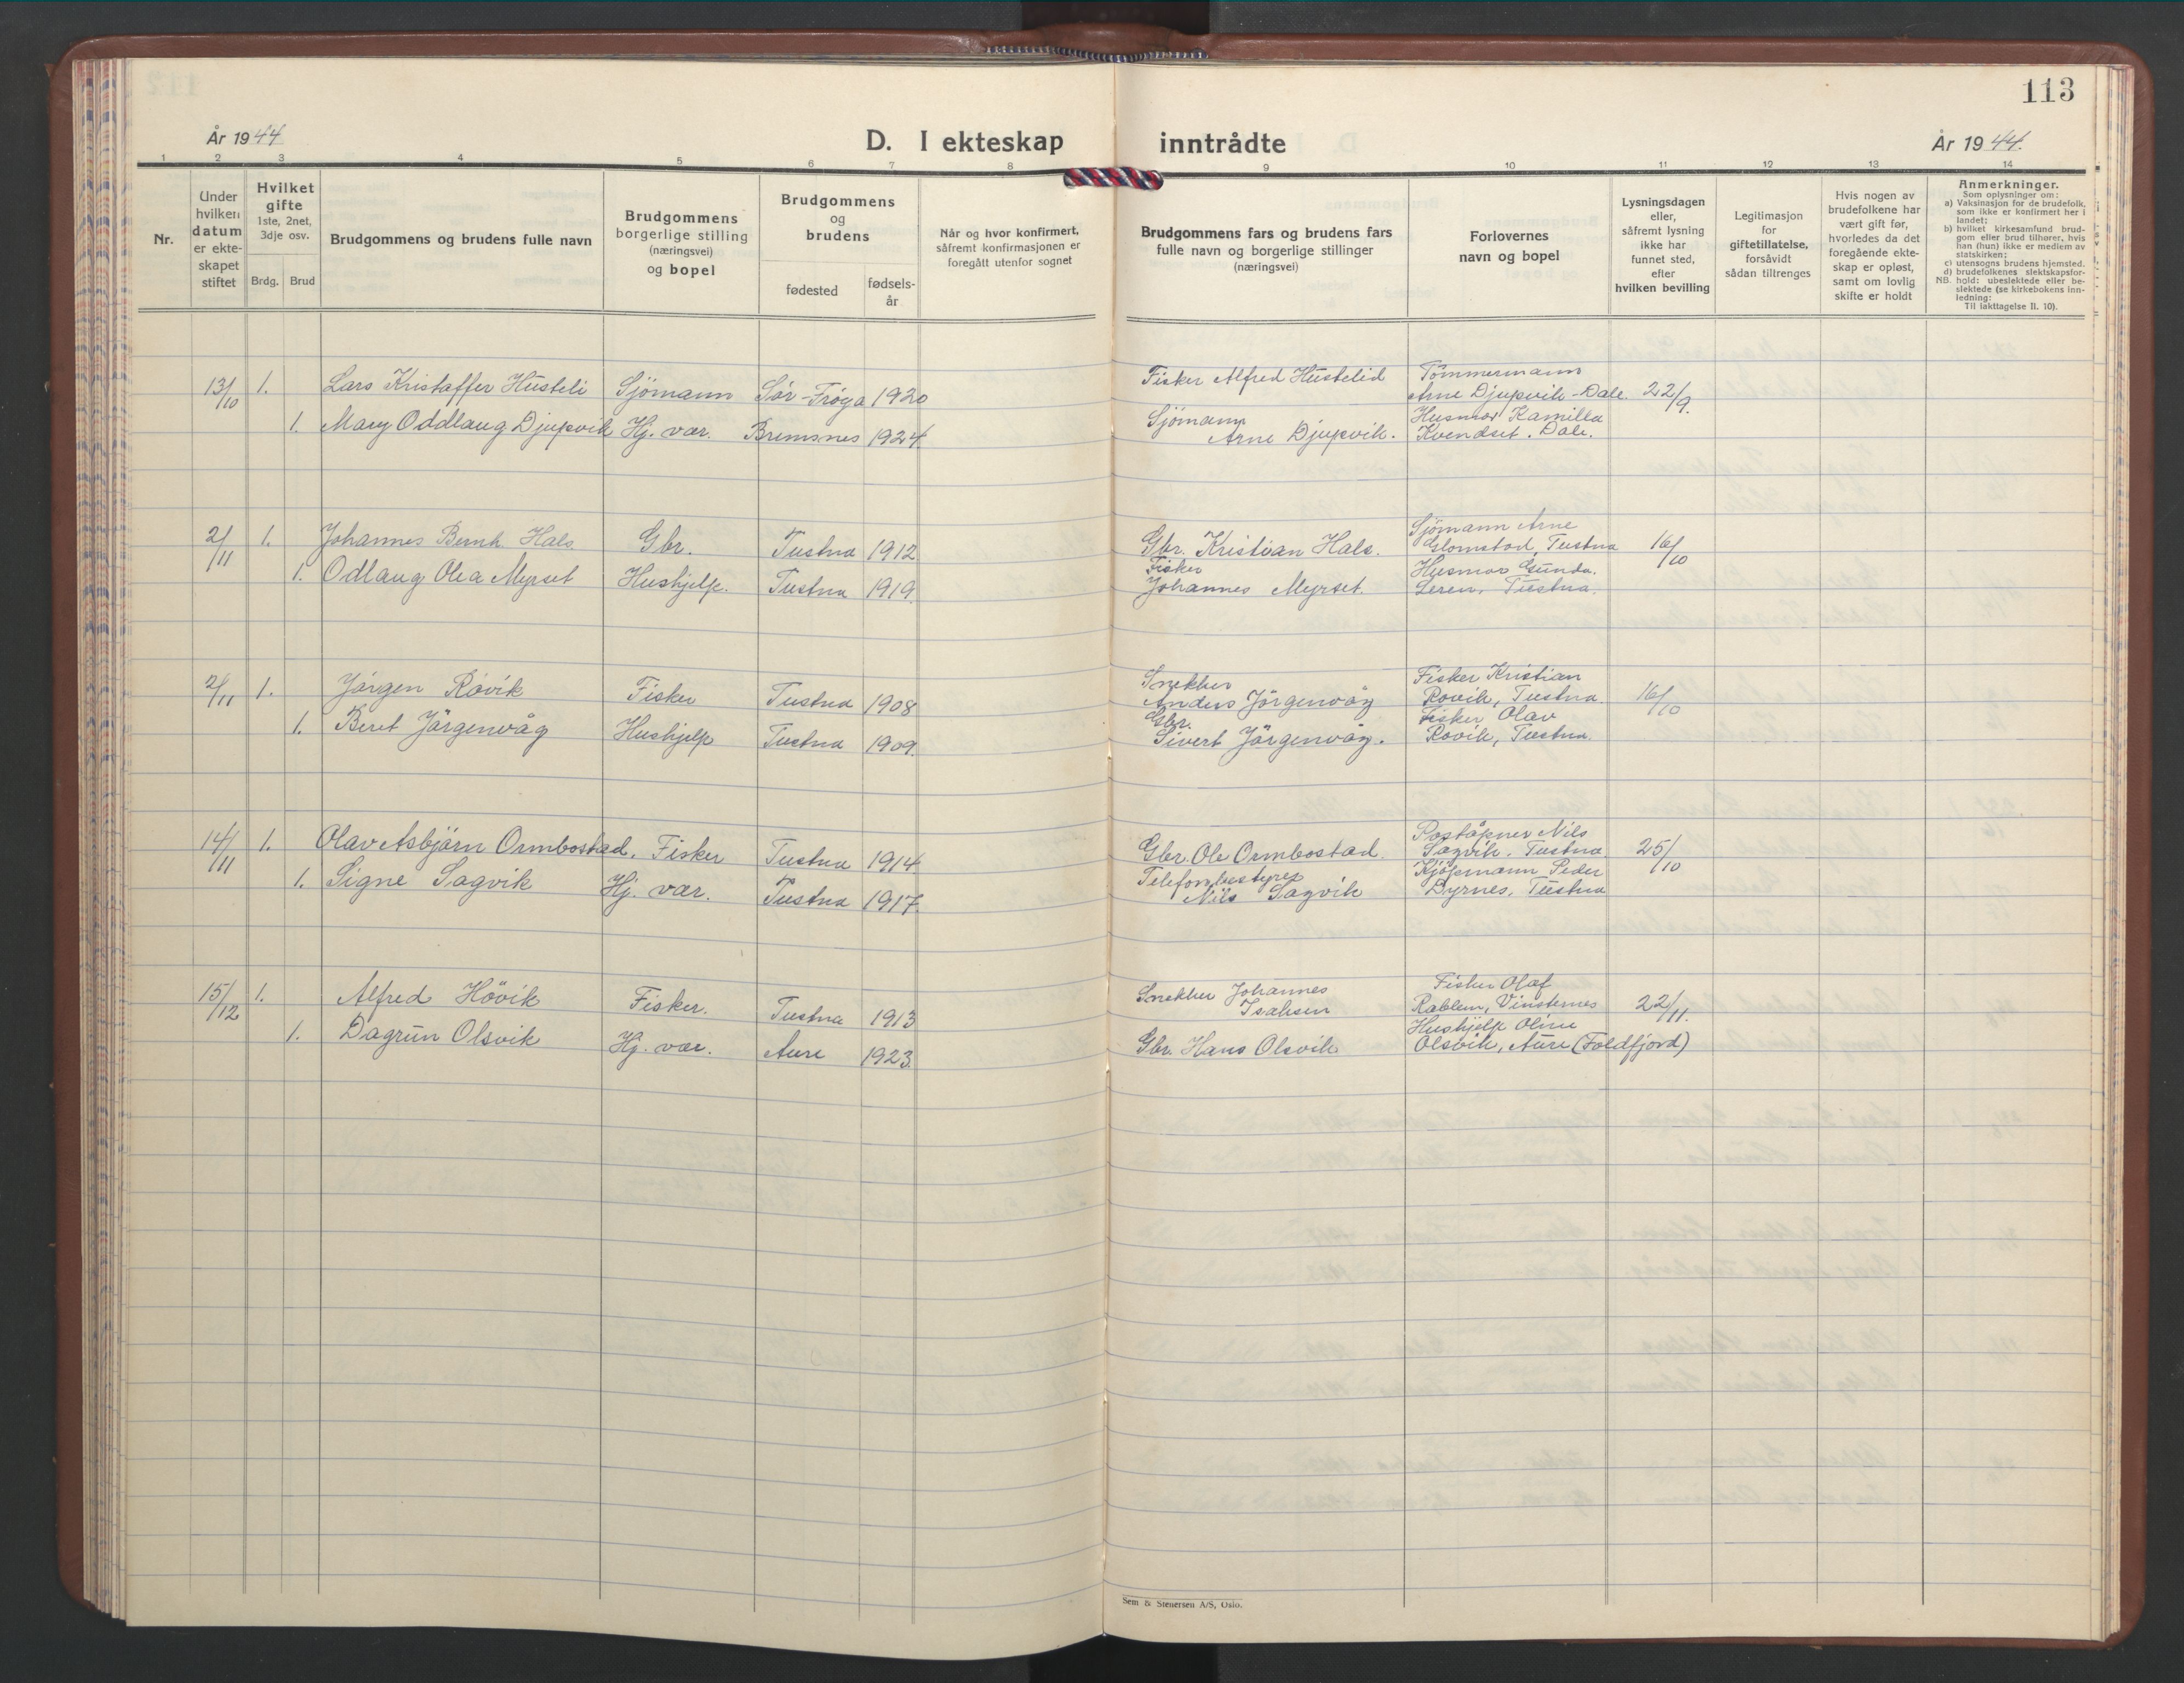 113
År 1944
D. I ekteskap inntrådte
År 1944.
1 2 3 4 5 6 7 8 9 10 11 12 13 14
Nr.
Under hvilken datum er ekteskapet stiftet
Hvilket gifte 1ste, 2net, 3dje osv.
Brdg. Brud
Brudgommens og brudens fulle navn
Brudgommens borgerlige stilling (næringsvei) og bopel
Brudgommens og brudens
fødested
fødselsår
Når og hvor konfirmert, såfremt konfirmasjonen er foregått utenfor sognet
Brudgommens fars og brudens fars fulle navn og borgerlige stillinger (næringsvei)
Forlovernes navn og bopel
Lysningsdagen eller, såfremt lysning ikke har funnet sted, efter hvilken bevilling
Legitimasjon for giftetillatelse, forsåvidt sådan tiltrenges
Hvis nogen av brudefolkene har vært gift før, hvorledes da det foregående ekteskap er opløst, samt om lovlig skifte er holdt
Anmerkninger.
Som oplysninger om:
a) Vaksinasjon for de brudefolk, som ikke er konfirmert her i landet;
b) hvilket kirkesamfund brudgom eller brud tilhører, hvis han (hun) ikke er medlem av statskirken;
c) utensogns brudens hjemsted.
d) brudefolkenes slektskapsforhold: ubeslektede eller beslektede (se kirkebokens innledning:
NB.
Til iakttagelse II. 10).
13/10 1. Lars Kristoffer Hüsteli Sjömann Sör-Fröya 1920 Fisker Alfred Hüstelid Tömmermann Arne Djupvik-Dale. 22/9.
1. Mary Oddlaug Djupvik Hj. vær. Bremsnes 1924 Sjömann Arne Djupvik. Husmor Kamilla Kvendset. Dale.
2/11 1. Johannes Bernh. Hals Gbr. Tustna 1912 Gbr. Kristian Hals. Sjömann Arne Glomstad, Tustna 16/10
1. Odlaug Olea Myrset Hushjelp. Tustna 1919. Fisker Johannes Myrset. Husmor Gunda. Leren, Tustna.
2/11 1. Jörgen Rövik Fisker Tustna 1908 Snekker Anders Jörgenvåg Fisker Kristian Rövik, Tustna. 16/10
1. Beret Jörgenvåg Hushjelp Tustna 1909. Gbr. Sivert Jörgenvåg. Fisker Olav Rovik, Tustna.
14/11 1. Olav Asbjörn Ormbostad. Fisker Tustna 1914 Gbr. Ole Ormbostad. Poståpner Nils Sagvik. Tustna 25/10
1. Signe Sagvik Hj. vær. Tustna 1917. Telefonbestyrer Nils Sagvik Kjöpmann Peder Dyrnes, Tustna
15/12 1. Alfred Hövik Fisker. Tustna 1913 Snekker Johannes Isaksen Fisker Olaf Rablem, Vinsternes 22/11.
1. Dagrün Olsvik Hj. vær. Aure 1923. Gbr. Hans Olsvik Hushjelp Oline Olsvik, Aure (Foldfjord)
Sem & Stenersen A/S, Oslo.